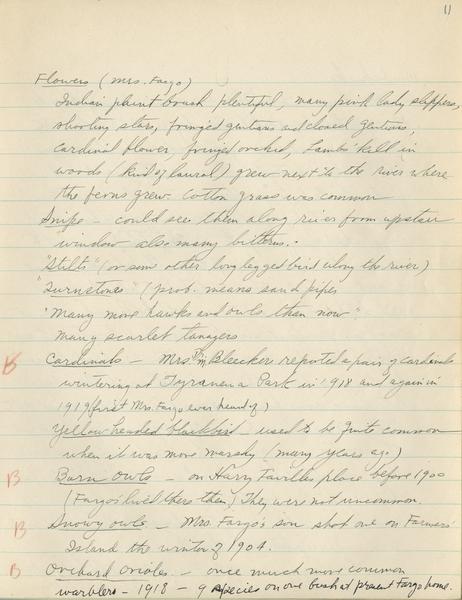 11
Flowers (Mrs. Fargo)
Indian paint brush plentiful, many pink lady slippers,
shooting stars, fringed gentians and closed gentians,
cardinal flower, fringed orchid, Lambs' kill in
woods (kind of laural) grew next to the river where
the ferns grew. Cotton grass was common
Snipe - could see them along river from upstair
window also many bitterns.
"Stilts" (or some other long legged bird along the river)
"Turnstones" (prob. means sand pipes
"Many more hawks and owls than now"
many scarlet tanagers
B Cardinals - Mrs. Bleecker reported a pair of cardinals
wintering at Tyranena Park in 1918 and again in
1919 (first Mrs. Fargo ever heard of)
Yellow headed blackbird - used to be quite common
when it was more marshy (many years ago)
B Barn Owls - on Harry Fairbles place before 1900
(Fargo's lived there then) They were not uncommon.
B Snowy owls - Mrs. Fargo's son shot one on Farmers'
Island the winter of 1904.
B Orchard Orioles - once much more common
warblers - 1918 - 9 species on one bush at present Fargo home.